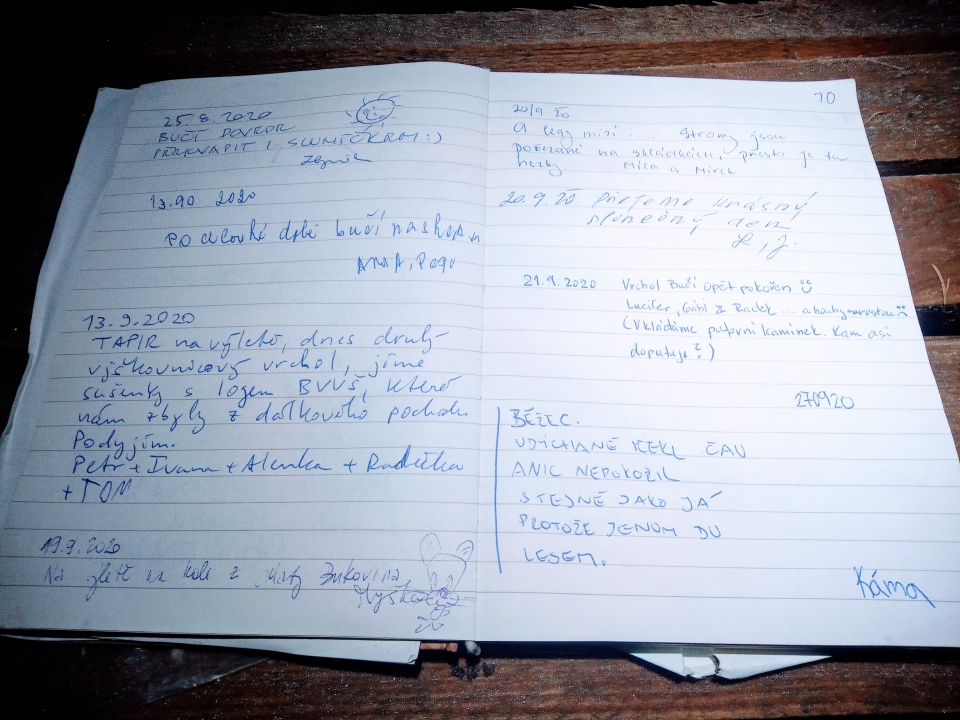 25.8.2020
BUČÍ DOVEDE
PŘEKVAPIT I SLUNÍČKEM :)
13.90 2020
PO dlouhé době bučí naskok
13.9.2020
TAPIR na výletě, dnes druhý
výškovnicový vrchol, jíme
sušenky s logem BVVŠ, které
nám zbyly z dálkového pochodu
Podyjím.
Petr + Ivana + Alenka + Radečka
+ TOM
19.9.2020
Na výletě na kole z chaty Bukovina,
Myška
10
20/9 20
A lesy mizí .... Stromy jsou
pořezané na skládkách, přesto je tu
hezky Míla a Mirek
20.9.20 Přejeme krásný
slunečný den
L, J.
21.9.2020 Vrchol Bučí opět pokořen
Lucifer, Gábi & Radek .... a houby nerostou
(Vkládáme putovní kamínek. Kam asi
doputuje?)
270920
BĚŽEC.
UDÝCHANĚ ŘEKL ČAU
A NIC NEPOLOŽIL
STEJNĚ JAKO JÁ
PROTOŽE JENOM DU
LESEM.
Káma